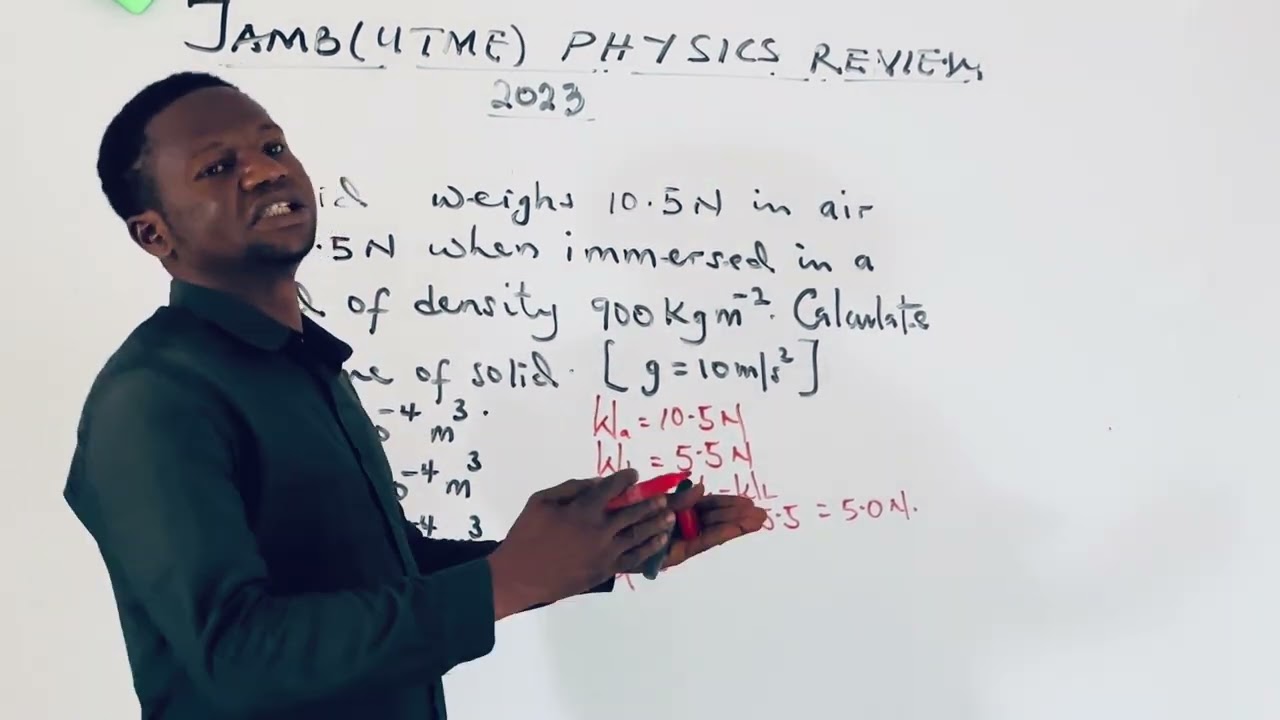 JAMB(UTME) PHYSICS REVIEW
2023
weighs 10.5N in air
.5N when immersed in a
of density 900Kgm⁻². Calculate
of solid. [g=10m/s²]
⁻⁴ m³.
⁻⁴ m³
⁻⁴ ³
Wₐ = 10.5N
= 5.5N
5.5 = 5.0N.